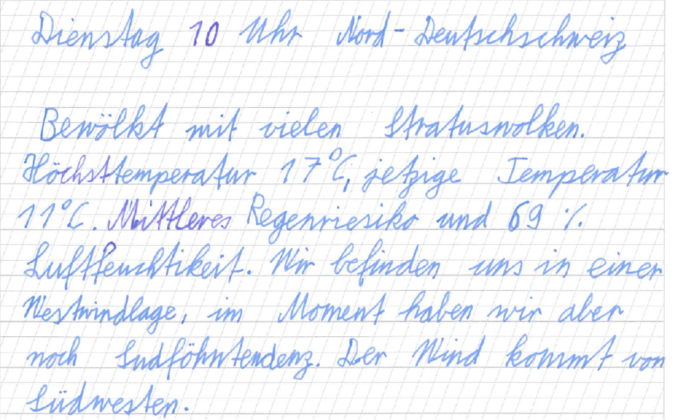 Dienstag 10 Uhr Nord-Deutschschweiz
Bewölkt mit vielen Stratuswolken.
Höchsttemperatur 17°C, jetzige Temperatur
11°C. Mittleres Regenriesiko und 69 %
Luftfeuchtikeit. Wir befinden uns in einer
Westwindlage, im Moment haben wir aber
noch Südföhntendenz. Der Wind kommt von
Südwesten.